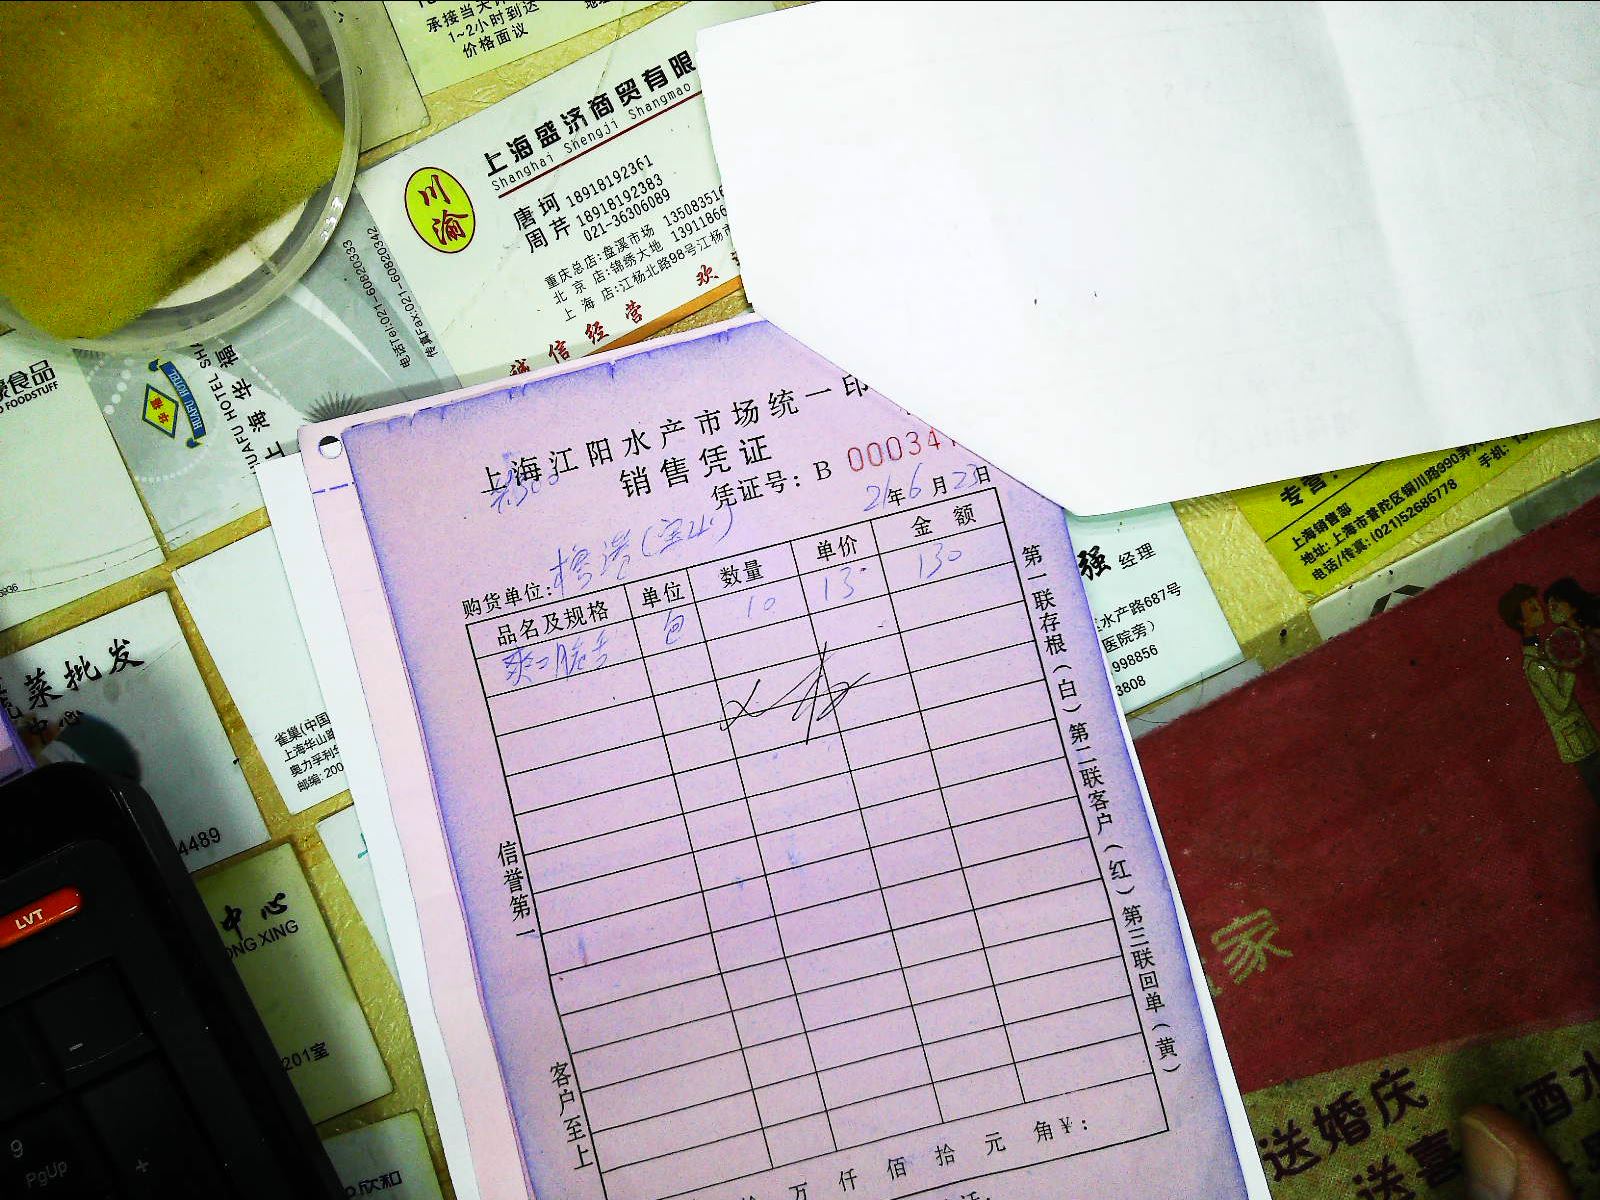 承接当天
1~2小时到达
价格面议
上海盛济商贸有限
Shanghai Shengji Shangmao
川渝
唐珂 18918192361
周芹 18918192383
021-36306089
重庆总店:盘溪市场 13508351
北京店:锦绣大地 13911866
上海店:江杨北路98号江杨市
诚信经营 欢
电话Tel:021-60820333
传真Fax:021-60820342
HUAFU HOTEL SHA
上海华
HUAFU HOTEL
食品
FOODSTUFF
上海江阳水产市场统一印
销售凭证
凭证号: B 00034
21年6月23日
购货单位:
品名及规格 单位 数量 单价 金额
爽口脆 包 10 13 130
信誉第一
客户至上
第一联存根(白)第二联客户(红)第三联回单(黄)
万 仟 佰 拾 元 角 ¥:
专营:
上海销售部
地址: 上海市普陀区铜川路990弄
电话/传真: (021)52686778
手机:
强 经理
水产路687号
医院旁)
998856
3808
菜批发
中心
4489
雀巢(中国
上海华山路
奥力孚利华
邮编: 200
中心
ONG XING
201室
欣和
LVT
9
PgUp
+
家
送婚庆
送喜
酒水